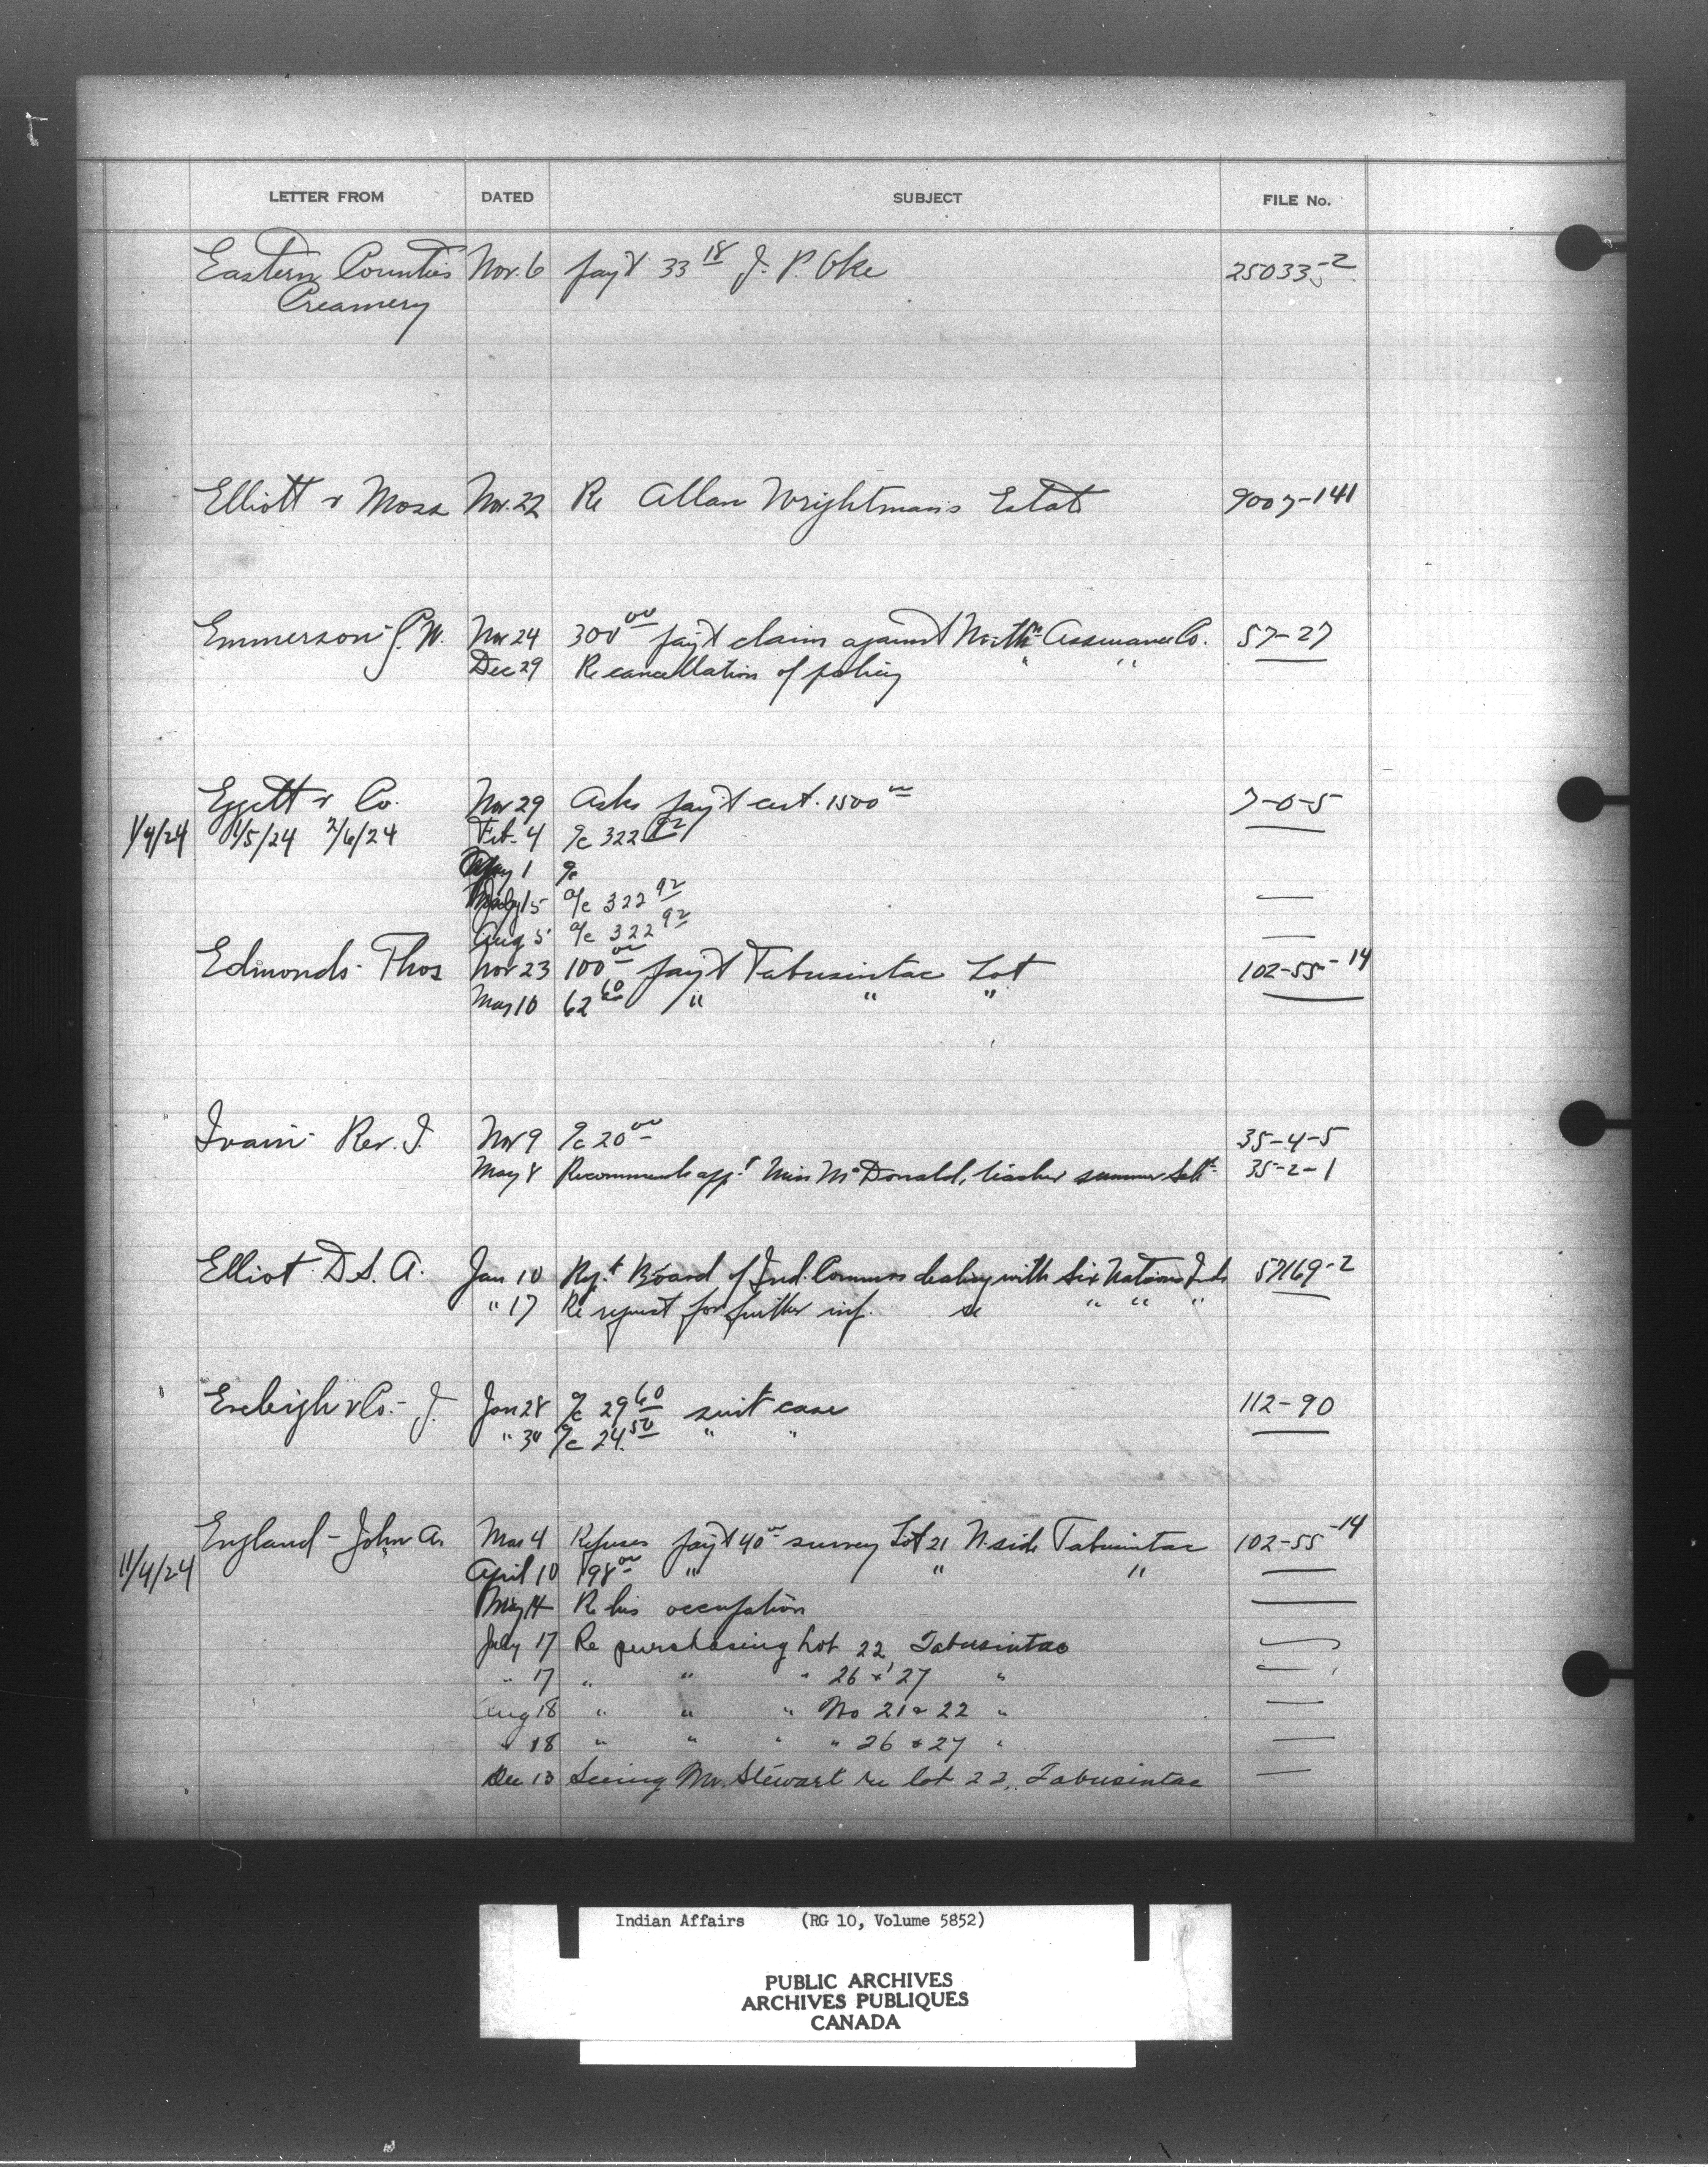 LETTER FROM DATED SUBJECT FILE No.
Eastern Counties Nov. 6 pay't 33 18 J. P. Oke 250335-2
Creamery
Elliott & Moss Nov. 22 Re Allan Wrightman's Estate 9007-141
Emmerson - W. Nov 24 300 00 pay't claim against North'n Assurance Co. 57-27
Dec 29 Re cancellation of policy " "
Eggett & Co. Nov 29 Asks pay't cert. 1500 00 7-0-5
1/4/24 1/5/24 2/6/24 Feb. 4 a/c 322 92
May 1 a/c
July 15 a/c 322 92 —
Aug 5 a/c 322 92 —
Edmonds - Thos Nov 23 100 00 pay't Tabusintac Lot 102-55-14
May 10 62 60 " " "
Rev. J. Nov 9 a/c 20 00 35-4-5
May 8 Recommends app't Miss McDonald, teacher summer Sch. 35-2-1
Elliot D S. A. Jan 10 Board of Ind. Commrs dealing with Six Nations Inds 57169-2
" 17 Re request for further inf. se " " "
& Co. - J. Jan 28 a/c 29 60 suit case 112-90
" 30 a/c 24. 50 " "
England - John A. Mar 4 Refuses pay't 40 00 survey Lot 21 N. side Tabusintac 102-55-14
11/4/24 April 10 198 00 " " " —
May 14 Re his occupation —
July 17 Re purchasing Lot 22, Tabusintac —
" 17 " " " 26 & 27 " —
Aug 18 " " " No 21 & 22 " —
" 18 " " " " 26 & 27 " —
Dec 13 Seeing Mr. Stewart re lot 22, Tabusintac —
Indian Affairs (RG 10, Volume 5852)
PUBLIC ARCHIVES
ARCHIVES PUBLIQUES
CANADA